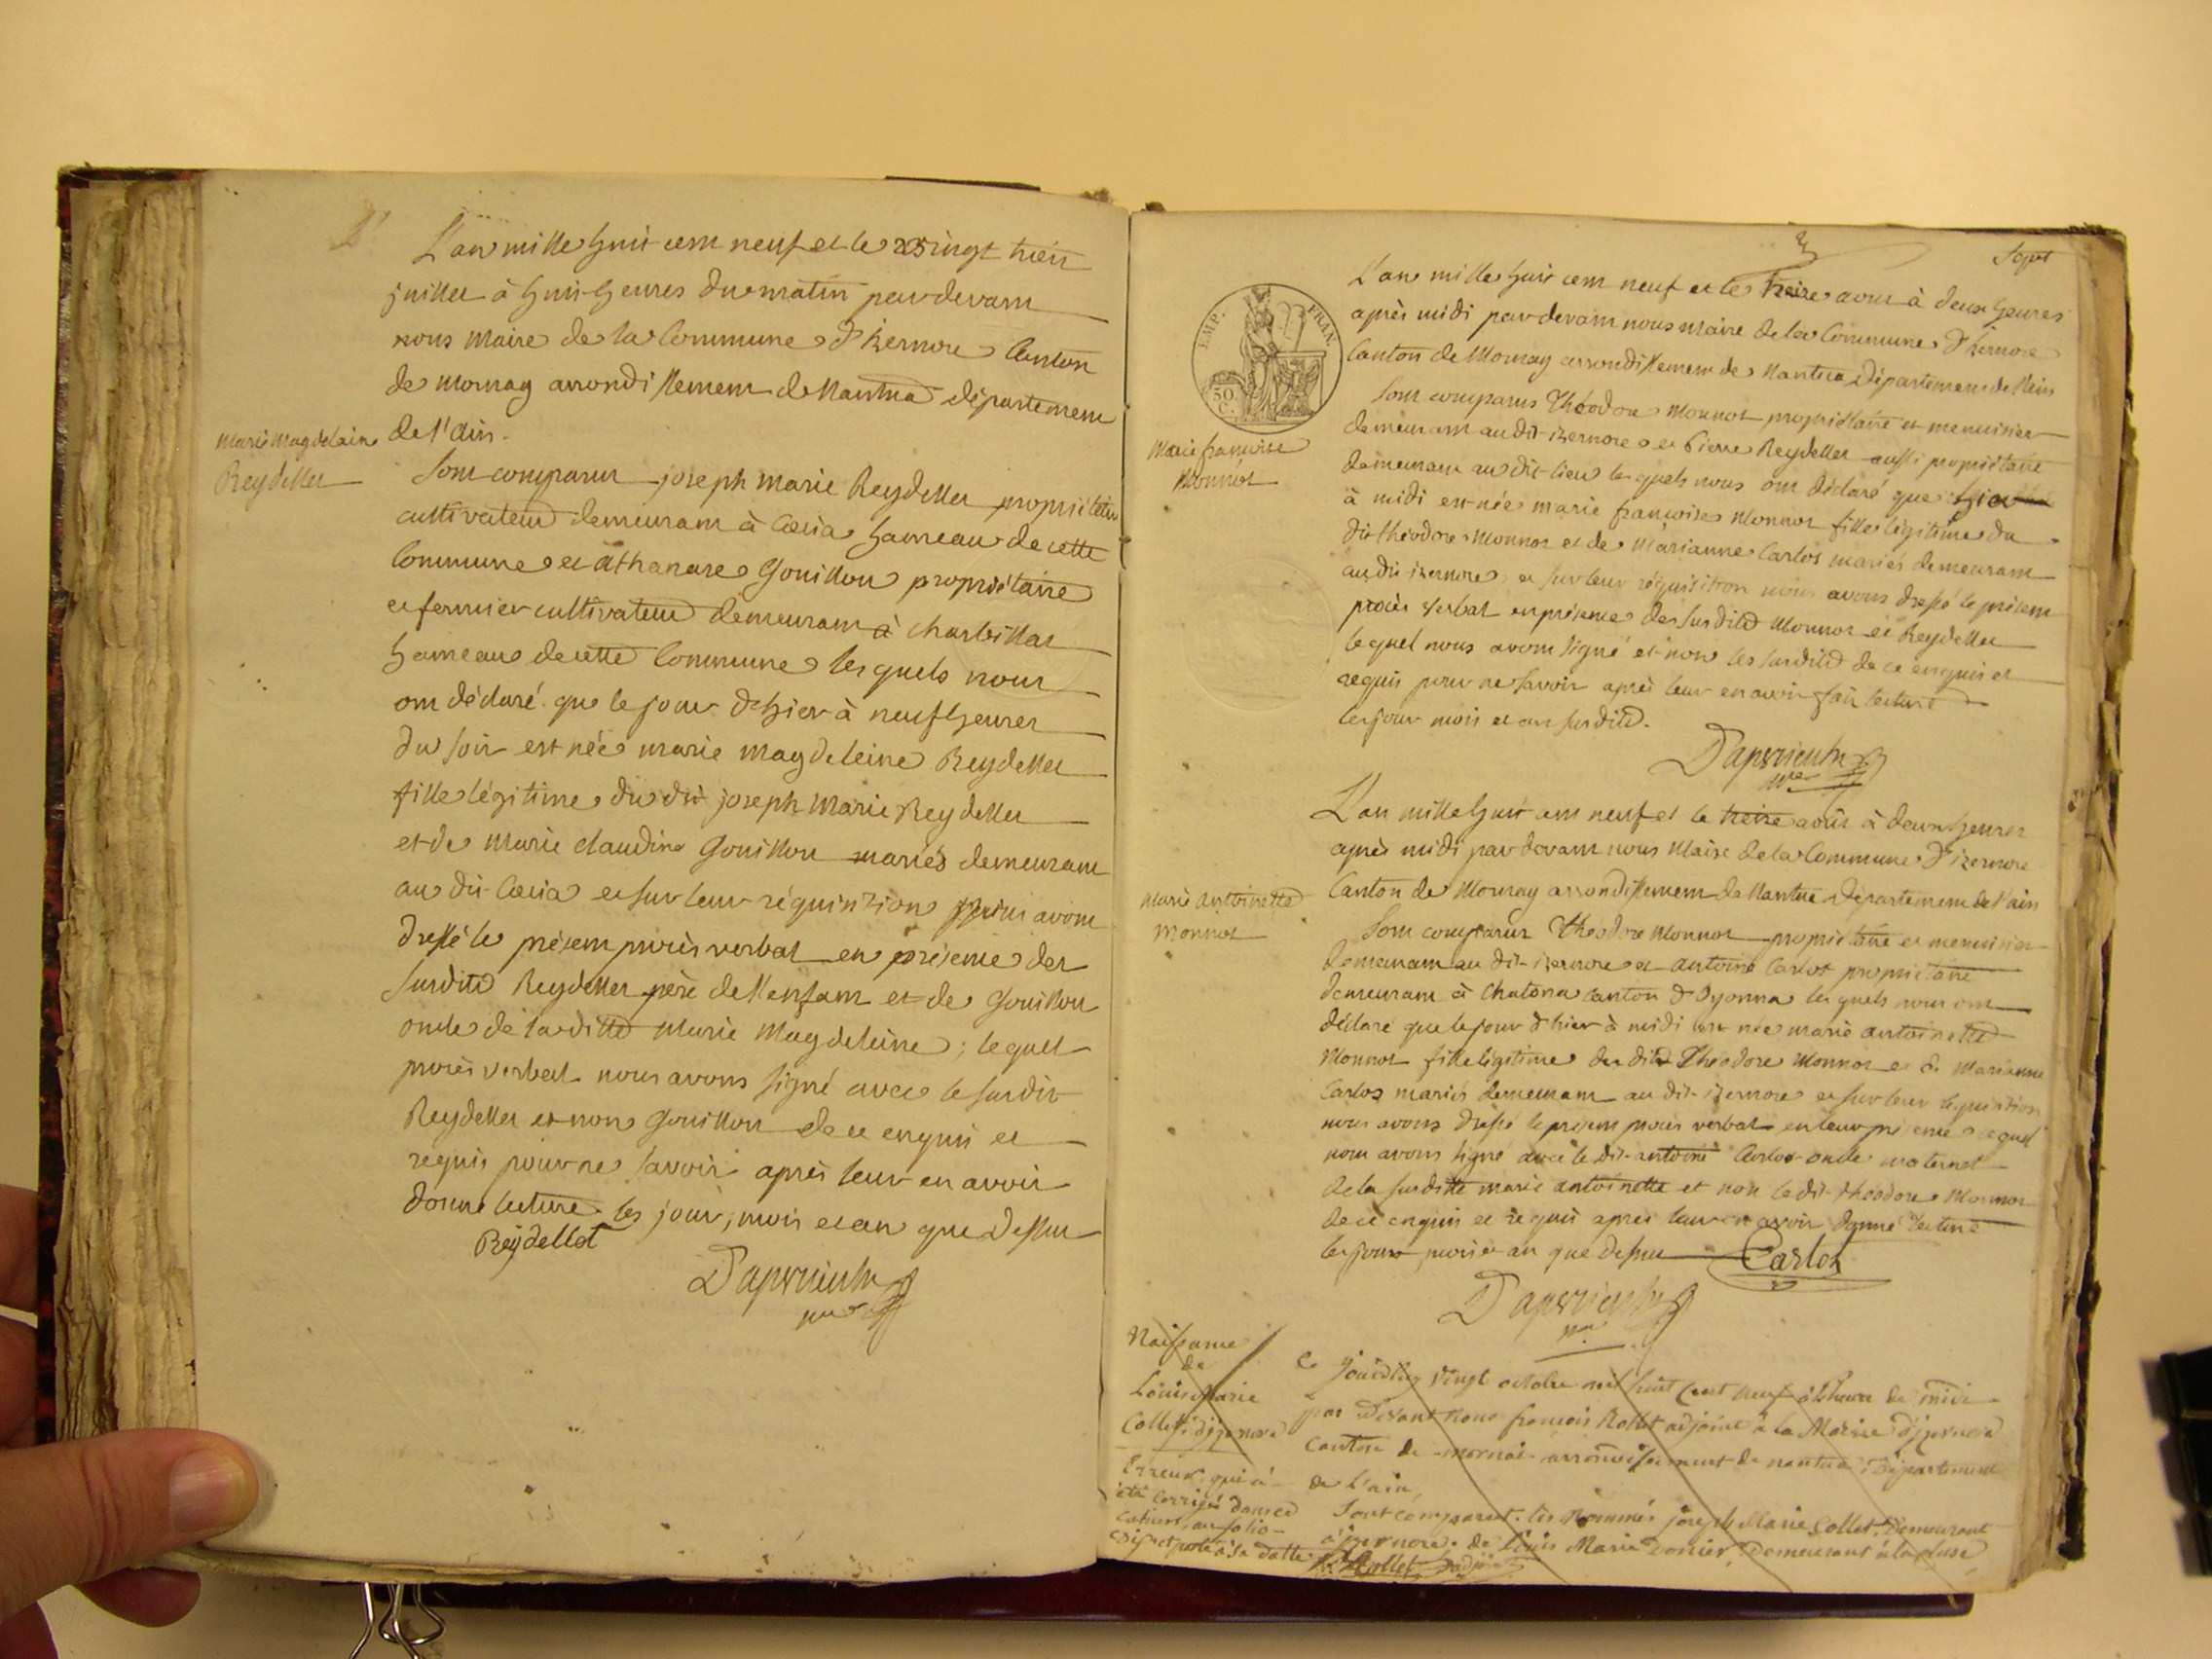 L'an mille huit cent neuf et le vingt trois
juillet à huit heures du matin pardevant
nous Maire de la Commune d'Izernore Canton
de Mornay arrondissement de Nantua département
de l'ain.
Marie Magdelaine
Reydellet
Sont comparus joseph Marie Reydellet propriétaire
cultivateur demeurant à Ceissia hameau de cette
Commune et athanase Gouillon propriétaire
et fermier cultivateur demeurant à Charbillat
hameau de cette Commune les quels nous
ont déclaré que le jour d'hier à neuf heures
du soir est née marie magdeleine Reydellet
fille légitime du dit joseph Marie Reydellet
et de Marie claudine Gouillon mariés demeurant
au dit et sur leur réquisition nous avons
dressé le présent procès verbal en présence des
susdits Reydellet père de l'enfant et de Gouillon
oncle de la ditte Marie Magdeleine ; lequel
procès verbal nous avons signé avec le susdit
Reydellet et non Gouillon de ce enquis et
requis pour ne savoir après leur en avoir
donné lecture les jour, mois et an que dessus
Reÿdellet
mre
Sept
IMP. FRAN.
50 C.
L'an mille huit cent neuf et le treize aout à deux heures
après midi pardevant nous Maire de la Commune d'Izernore
Canton de Mornay arrondissement de Nantua Département de l'ain
Marie françoise
Monnot
Sont comparus Théodore Monnot propriétaire et menuisier
demeurant au dit izernore et Pierre Reydellet aussi propriétaire
demeurant au dit lieu les quels nous ont déclaré que hier
à midi est née marie françoise Monnot fille légitime du
dit théodore Monnot et de Marianne Carlos mariés demeurant
au dit izernore et sur leur réquisition nous avons dressé le présent
procès verbal en présence des susdits Monnot et Reydellet
lequel nous avons signé et non les susdits de ce enquis et
requis pour ne savoir après leur en avoir fait lecture
les jour mois et an susdits.
mre
L'an mille huit cent neuf et le treize août à deux heures
après midi pardevant nous Maire de la Commune d'izernore
Canton de Mornay arrondissement de Nantua Département de l'ain
Marie antoinette
Monnot
Sont comparus Théodore Monnot propriétaire et menuisier
demeurant au dit izernore et antoine Carlos propriétaire
demeurant à Chatona canton d'Oyonna les quels nous ont
déclaré que le jour d'hier à midi est née marie antoinette
Monnot fille légitime du dit Théodore Monnot et de Marianne
Carlos mariés demeurant au dit izernore et sur leur réquisition
nous avons dressé le présent procès verbal en leur présence lequel
nous avons signé avec le dit antoine Carlos oncle maternel
de la susditte marie antoinette et non le dit théodore Monnot
de ce enquis et requis après leur en avoir donné lecture
les jour mois et an que dessus Carlos
mre
Naissance
de
Louis Marie
Collet d'izernore
Ce vingt octobre mil huit cent neuf à l'heure de midi
par Devant Nous françois Rollet adjoint à la Mairie d'izernore
canton de mornai arrondissement de nantua Département
de l'ain,
Erreur qui à
été Corrigée dans ce
Cahiers, au folio
et porté à sa datte
Sont comparut. les Nommés joseph Marie Collet, Demeurant
à izernore. de Louis Marie Demeurant à la cluse
Rollet adjt